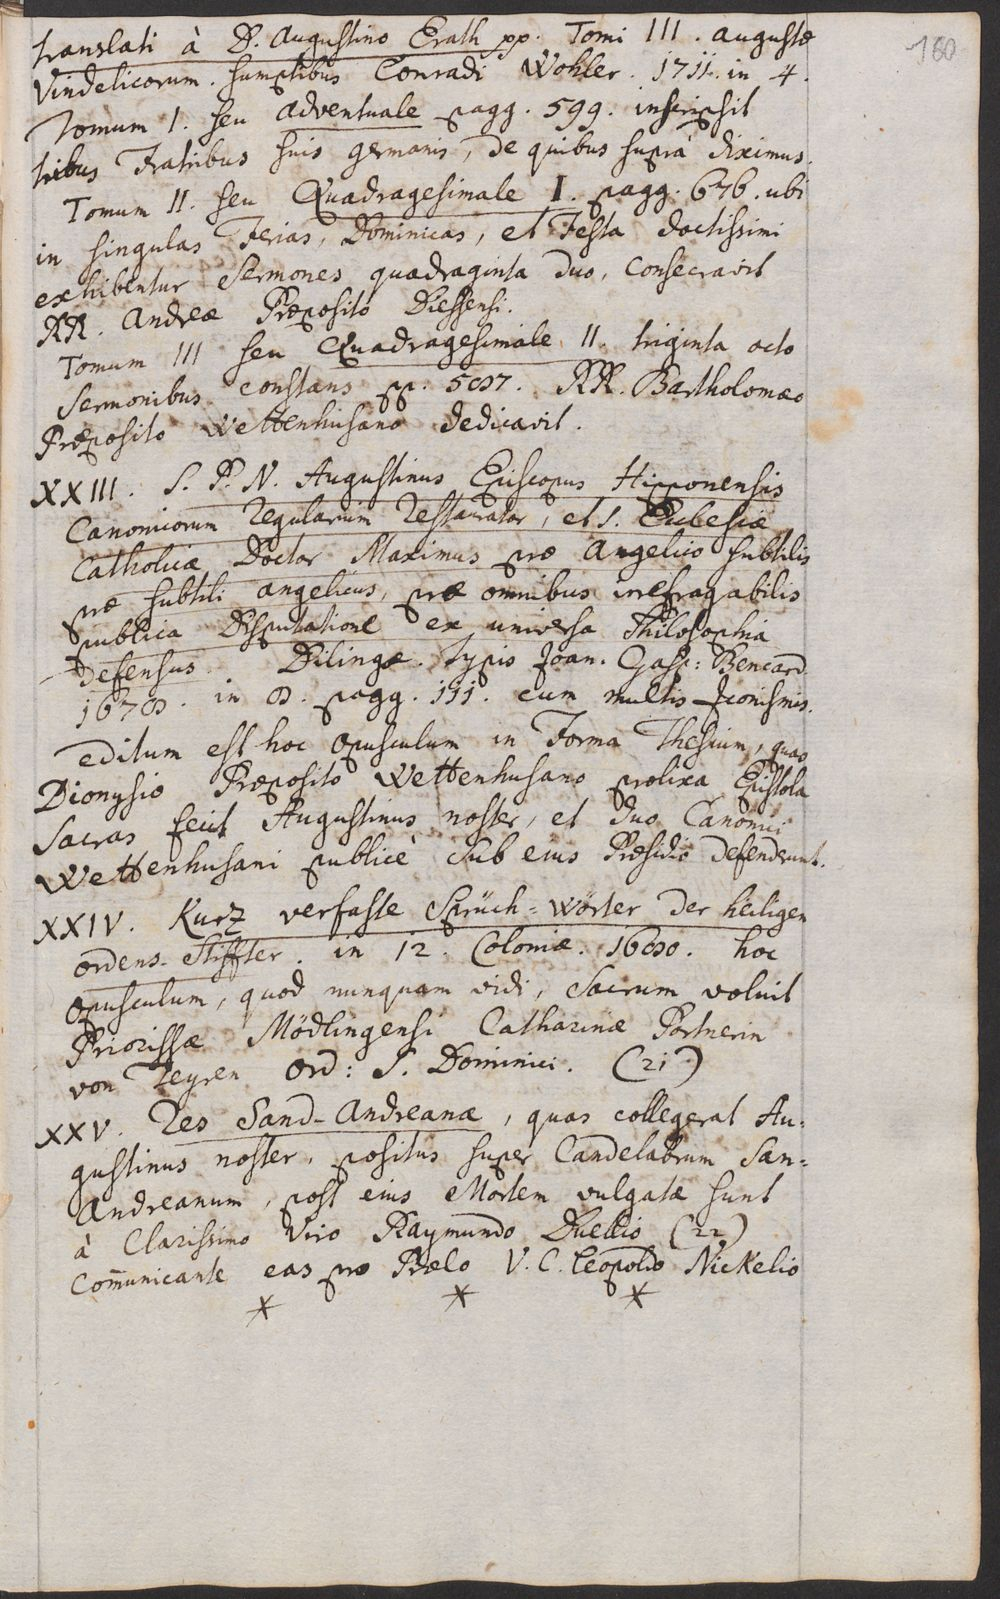 180
translati à D. Augustino Erath pp. Tomi III. Augustæ
Vindelicorum. sumptibus Conradi Wohler. 1711. in 4.
Tomum I. seu Adventuale pagg. 599. inscripsit
tribus Fratribus suis germanis, de quibus suprà diximus.
Tomum II. seu Quadragesimale I. pagg. 676. ubi
in singulas Ferias, Dominicas, et Festa doctissimi
exhibentur Sermones quadraginta duo, Consecravit
RR. Andreæ Præposito Diessensi.
Tomum III seu Quadragesimale II. triginta octo
Sermonibus constans pp. 587. RR. Bartholomæo
Præposito Wettenhusano dedicavit.
XXIII. S. P. N. Augustinus Episcopus Hipponensis
Canonicorum Regularium Restaurator, et S. Ecclesiæ
Catholicæ Doctor Maximus præ Angelico subtilis
præ subtili angelicus, præ omnibus irrefragabilis
publica Disputatione ex universa Philosophia
Defensus. Dilingæ. Typis Joan. Gasp: Bencard
1678. in 8. pagg. 111. cum multis Iconismis.
editum est hoc opusculum in Forma Thesium, quas
Dionysio Præposito Wettenhusano prolixa Epistola
Sacras fecit Augustinus noster, et duo Canonici
Wettenhusani publicè sub eius Præsidio defenderunt.
XXIV. Kurz verfaste Sprüch=wörter der heiligen
ordens-Stiffter. in 12. Coloniæ. 1680. hoc
opusculum, quod nunquam vidi, Sacrum voluit
Priorissæ Mödlingensi Catharinæ Portnerin
von Teyren Ord: S. Dominici. (21)
XXV. Res Sand-Andreanæ, quas collegerat Au-
gustinus noster, positus super Candelabrum San=
Andreanum, post eius Mortem vulgatæ sunt
à Clarissimo Viro Raymundo Duellio (22)
Com̄unicante eas pro Prælo V. C. Leopoldo Nickelio
* * *